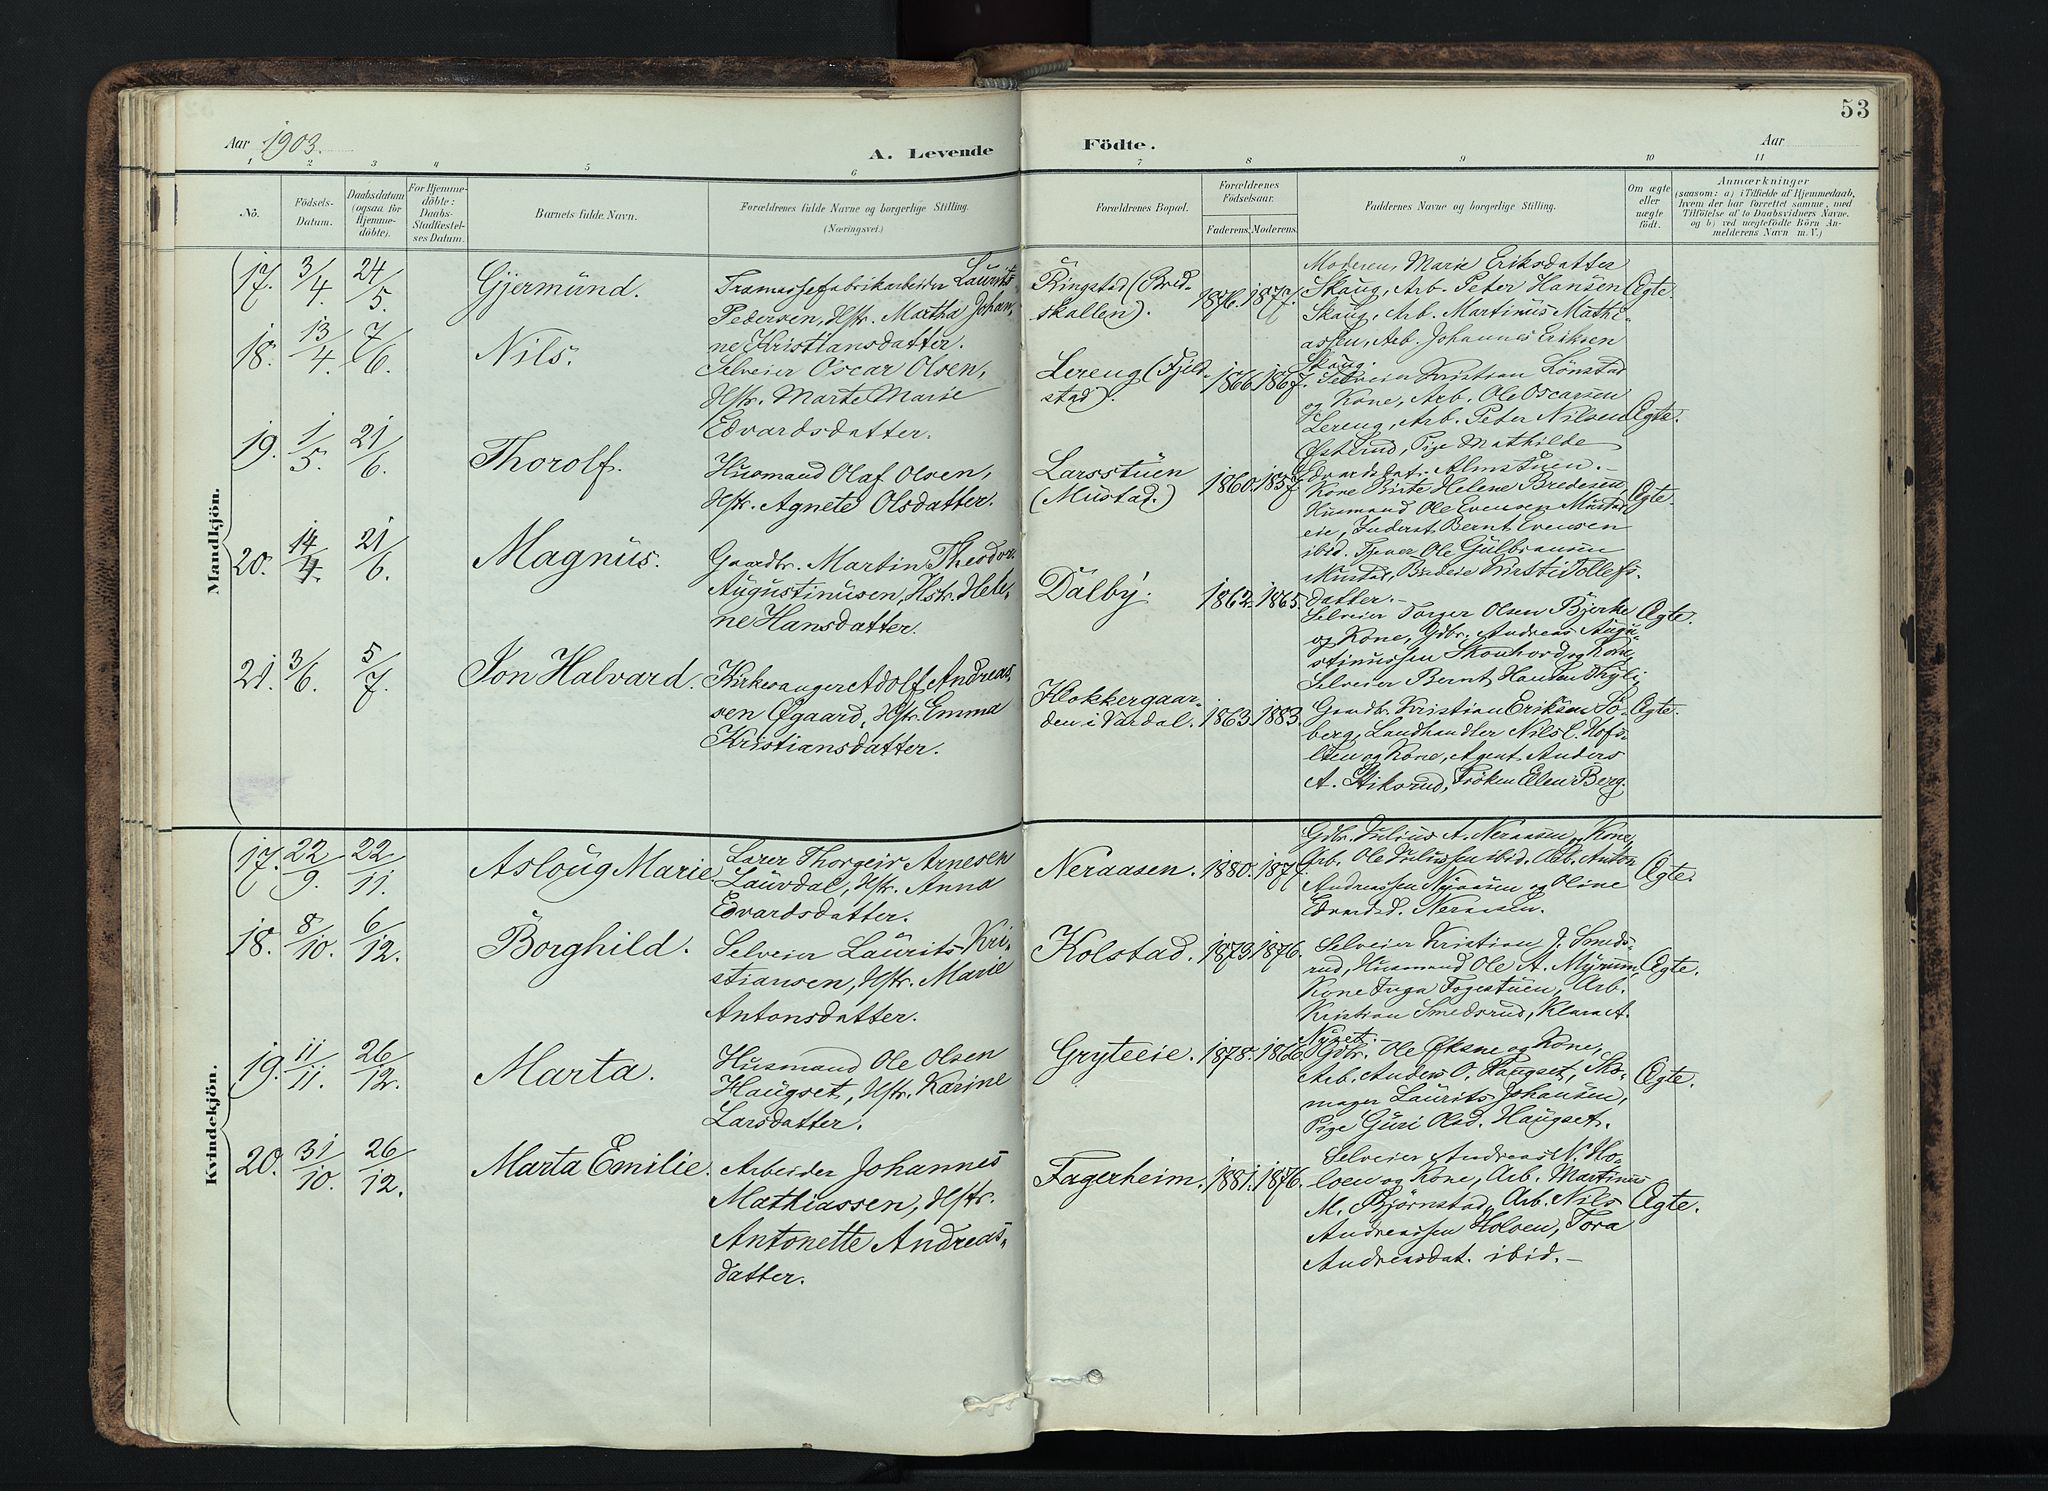 53
Aar 1903.
A. Levende
Födte.
Aar
1 2 3 4 5 6 7 8 9 10 11
Nö.
Födsels-
Datum.
Daabsdatum
(ogsaa för
Hjemme-
döbte).
For Hjemme-
döbte:
Daabs-
Stadfæstel-
ses Datum.
Barnets fulde Navn.
Forældrenes fulde Navne og borgerlige Stilling.
(Næringsvei.)
Forældrenes Bopæl.
Forældrenes
Födselsaar.
Faderens. Moderens.
Faddernes Navne og borgerlige Stilling.
Om ægte
eller
uægte
födt.
Anmærkninger
(saasom: a) i Tilfælde af Hjemmedaab,
hvem der har forrettet samme, med
Tilföielse af to Daabsvidners Navne.
og b) ved uægtefödte Börn An-
melderens Navn m. V.)
Mandkjön.
17. 3/4. 24/5. Gjermund.
Træmassefabrikarbeider Laurits
Pedersen, Hstr. Martha Johan-
ne Kristiansdatter.
Ringstad (Bred-
skallen).
1876. 1877.
Moderen, Marie Eriksdatter
Skaug, Arb. Peter Hansen
Skaug, Arb. Martinus Mathi-
assen, Arb. Johannes Eriksen
Skaug.
Ægte.
18. 13/4. 7/6. Nils.
Selveier Oscar Olsen,
Hstr. Marte Marie
Edvardsdatter.
Lereng (Fjeld-
stad).
1866. 1867.
Selveier Kristian Lønstad
og Kone, Arb. Ole Oscarsen
Lereng, Arb. Peter Nilsen
Østerud, Pige Mathilde
Edvardsdat. Almstuen.-
Ægte.
19. 1/5. 21/6. Thorolf.
Husmand Olaf Olsen,
Hstr. Agnete Olsdatter.
Larsstuen
(Mustad.)
1860. 1857.
Kone Birte Helene Bredesen,
Husmand Ole Evensen Mustad
eie, Inderst Bernt Evensen
ibid. Tjener Ole Gulbransen
Mustad, Budeie Kirsti Tollefs-
datter.-
Ægte.
20. 14/4. 21/6. Magnus.
Gaardbr. Martin Theodor
Augustinusen, Hstr. Hele-
ne Hansdatter.
Dalby.
1862. 1865.
Selveier Torger Olsen Bjerke
og Kone, Gdbr. Andreas Augu-
stinussen Skonhord og Kone,
Selveier Bernt Hansen Thyli,
Ægte.
21. 3/6. 5/7. Jon Halvard.
Kirkesanger Adolf Andreas-
sen Øgaard, Hstr. Emma
Kristiansdatter.
Klokkergaar-
den i Vardal.
1863. 1883.
Gaardbr. Kristian Eriksen Sö-
berg, Landhandler Nils C. Hofs-
læn og Kone, Agent Anders
A. Stiksrud, Frøken Elen Berg.
Ægte.
Kvindekjön.
17. 22/9. 22/11. Asloug Marie.
Lærer Thorgejr Arnesen
Laurdal, Hstr. Anna
Edvardsdatter.
Neraasen.
1880. 1877.
Gdbr. Julius A. Neraasen, Kone,
Arb. Ole Juliussen ibid. Arb. Anton
Andreassen Nyaasen og Oline
Edvardsd. Neraasen.
Ægte.
18. 8/10. 6/12. Borghild.
Selveier Laurits Kri-
stiansen, Hstr. Marie
Antonsdatter.
Kolstad.
1873. 1876.
Selveier Kristian J. Smeds-
rud, Husmand Ole A. Myrum,
Kone Inga Fogestuen, Arb.
Kristian Smedsrud, Klara A.
Nyset.-
Ægte.
19. 11/11. 26/12. Marta.
Husmand Ole Olsen
Haugset, Hstr. Karine
Larsdatter.
Gryteeie.
1878. 1866.
Gdbr. Ole Øksne og Kone,
Arb. Anders O. Haugset, Sko-
mager Laurits Johansen,
Pige Guri Olsd. Haugset.
Ægte.
20. 31/10. 26/12. Marta Emilie.
Arbeider Johannes
Mathiassen, Hstr.
Antonette Andreas-
datter.
Fagerheim.
1881. 1876.
Selveier Andreas N. Ho-
loen og Kone, Arb. Martinus
M. Bjørnstad, Arb. Nils
Andreassen Holoen, Tora
Andreasdat. ibid.-
Ægte.